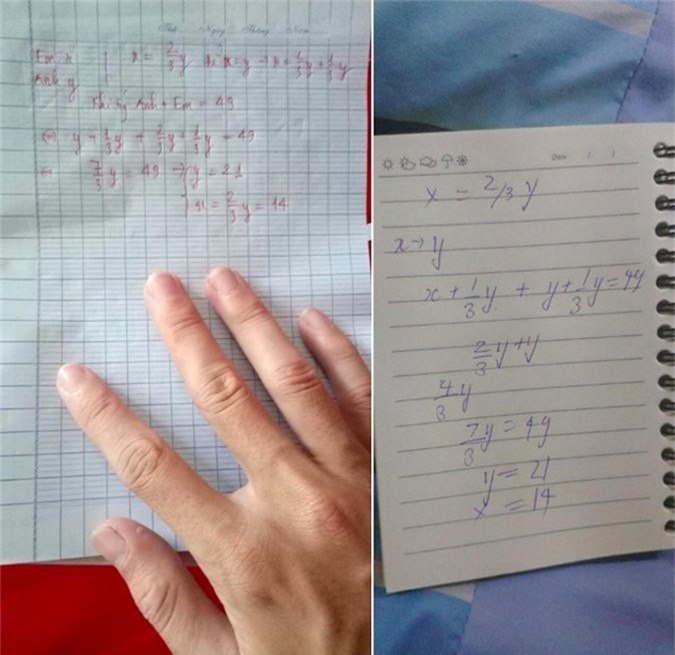 Thứ Ngày Tháng Năm
Em x x = 2/3 y x = y → x + 1/3 y + 1/3 y
Anh y
Khi ấy Anh + Em = 49
⇔ y + 1/3 y + 2/3 y + 1/3 y = 49
⇔ 7/3 y = 49 → y = 21
x = 2/3 y = 14
Date / /
x = 2/3 y
x → y
x + 1/3 y + y + 1/3 y = 49
2/3 y + y
4/3 y
7/3 y = 49
y = 21
x = 14